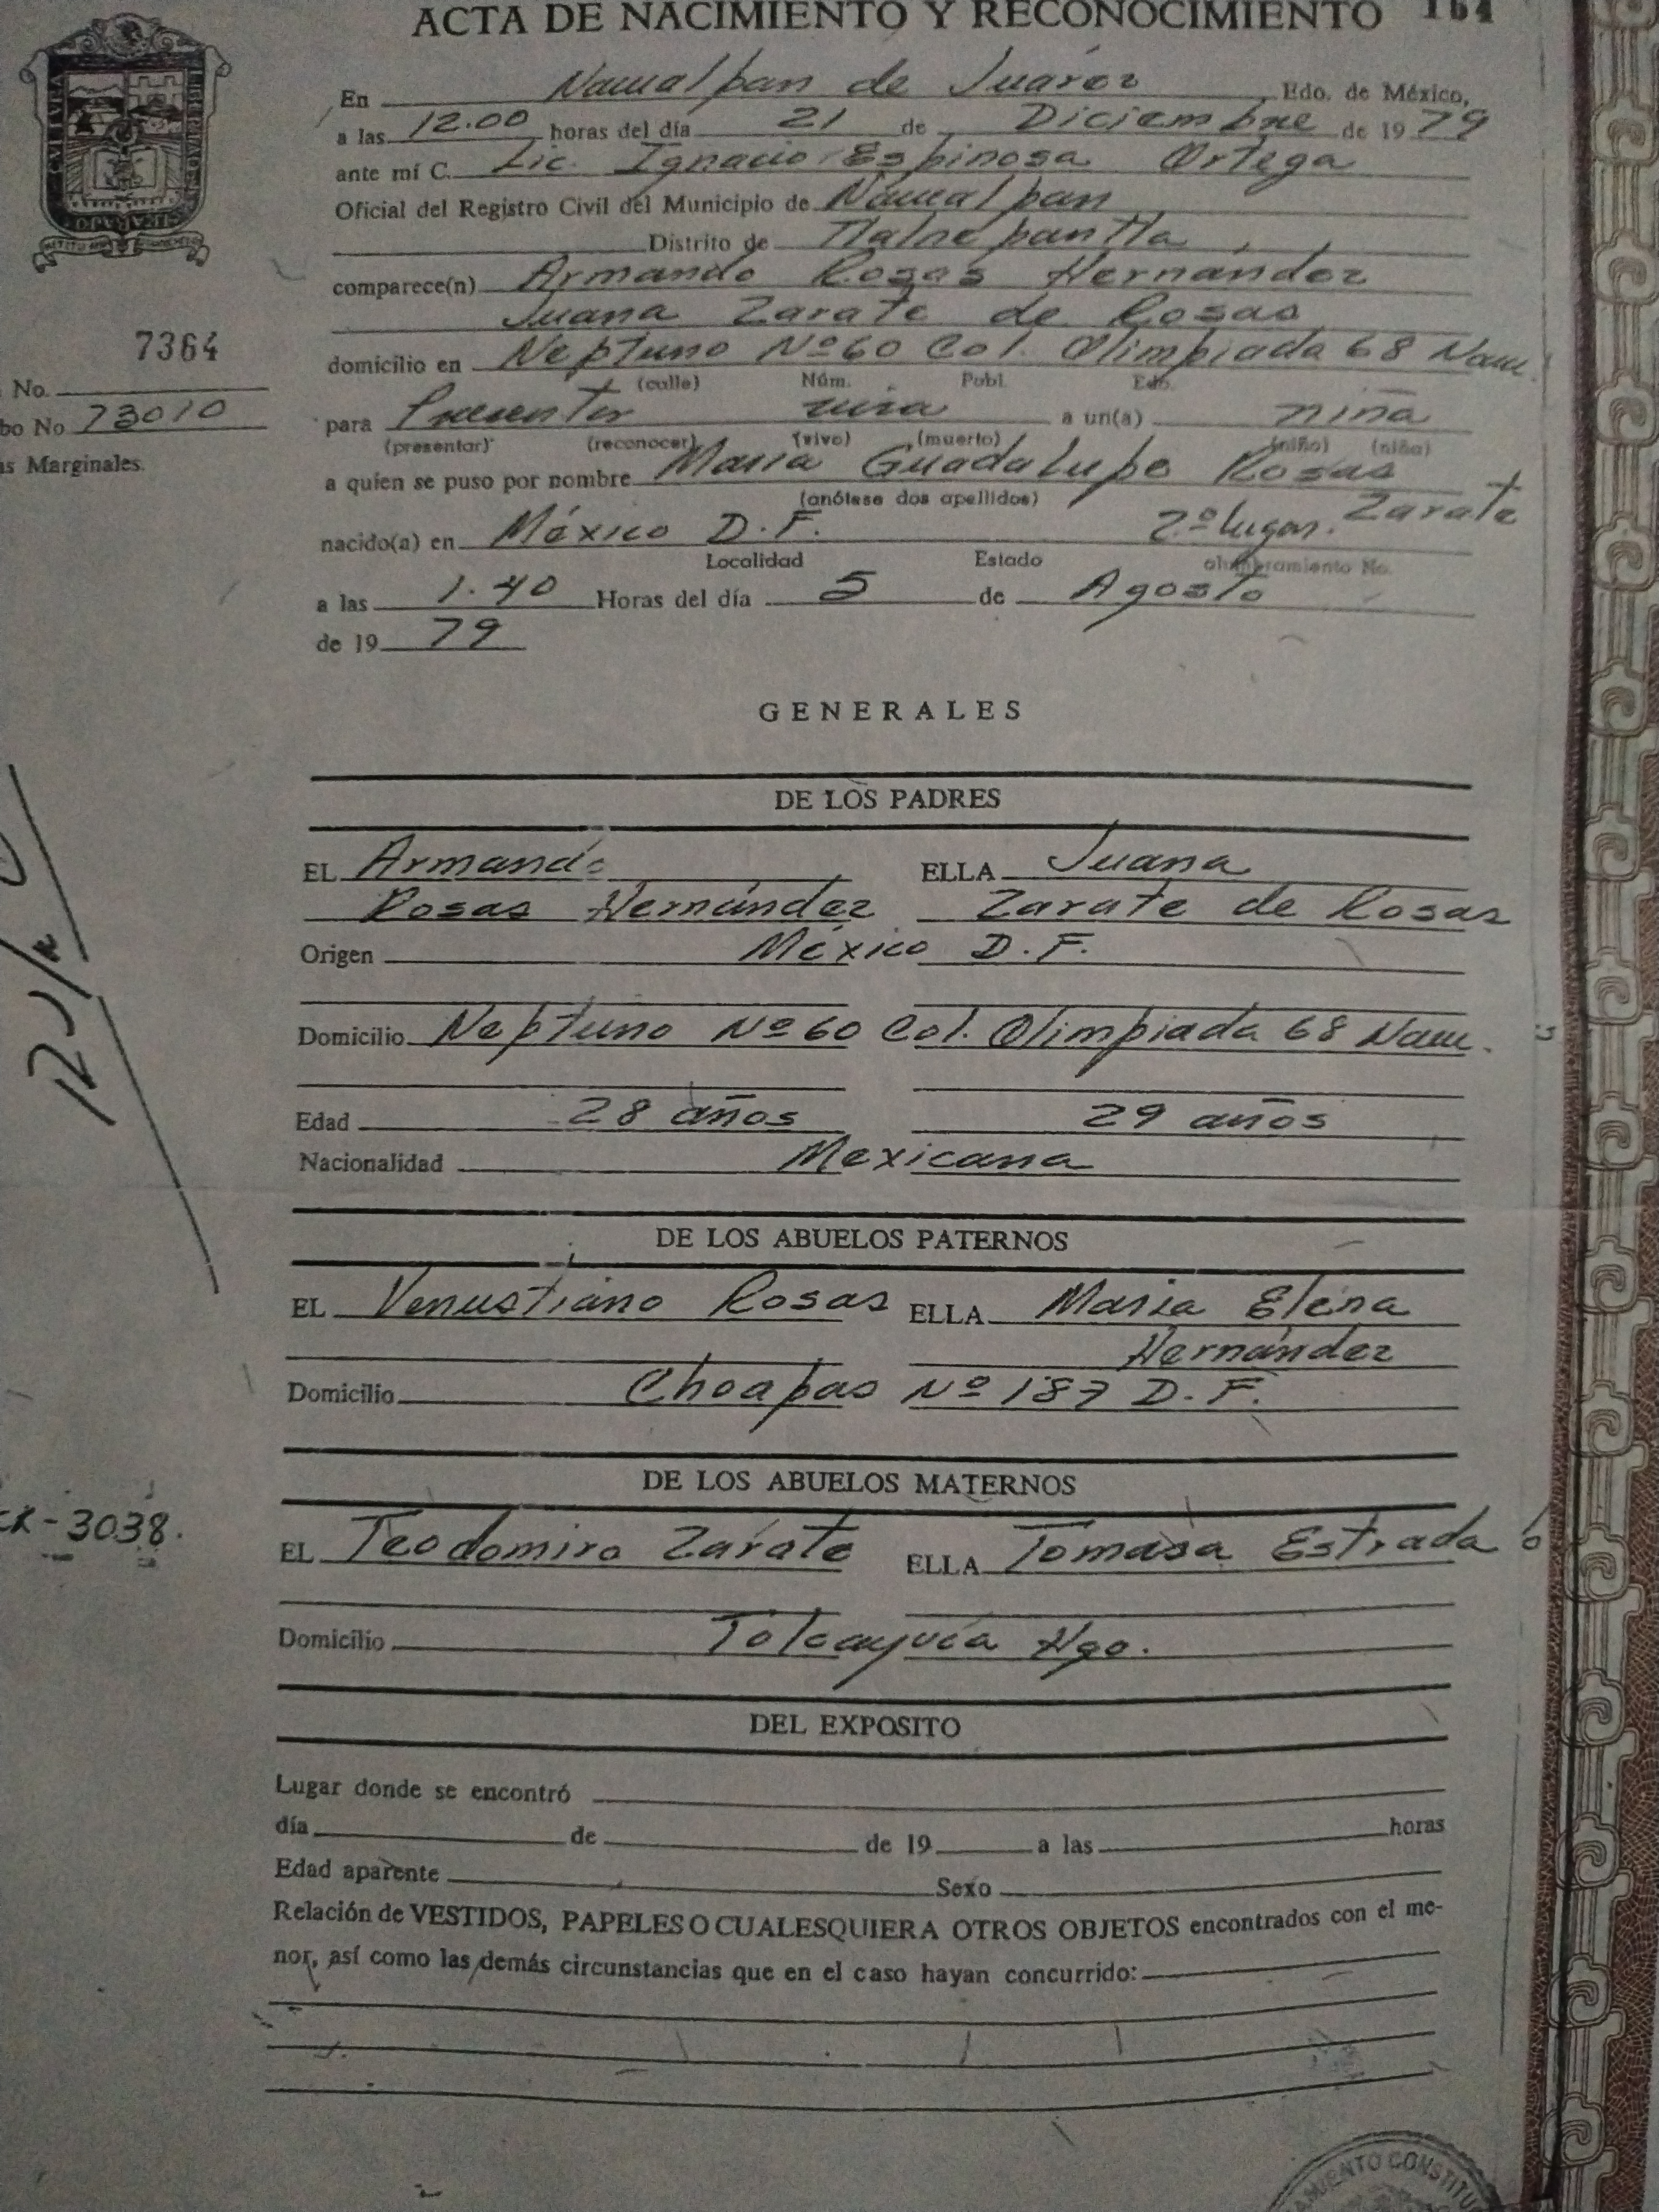 ACTA DE NACIMIENTO Y RECONOCIMIENTO 164
En Naucalpan de Juárez Edo. de México,
a las 12.00 horas del día 21 de Diciembre de 1979
ante mí C. Lic. Ignacio Espinosa Ortega
Oficial del Registro Civil del Municipio de Naucalpan
Distrito de Tlalnepantla
comparece(n) Armando Rosas Hernández
Juana Zarate de Rosas
7364
domicilio en Neptuno Nº 60 Col. Olimpiada 68 Nau.
(calle) Núm. Pobl. Edo.
No.
bo No 73010
para Presentar viva a un(a) niña
(presentar) (reconocer) (vivo) (muerto) (niño) (niña)
as Marginales.
a quien se puso por nombre Maria Guadalupe Rosas
(anótese dos apellidos) Zarate
nacido(a) en México D.F. 2º lugar.
Localidad Estado alumbramiento No.
a las 1.40 Horas del día 5 de Agosto
de 1979
GENERALES
DE LOS PADRES
EL Armando ELLA Juana
Rosas Hernández Zarate de Rosas
Origen México D.F.
Domicilio Neptuno Nº 60 Col. Olimpiada 68 Nau.
Edad 28 años 29 años
Nacionalidad Mexicana
DE LOS ABUELOS PATERNOS
EL Venustiano Rosas ELLA Maria Elena
Hernández
Domicilio Choapas Nº 187 D.F.
DE LOS ABUELOS MATERNOS
-3038.
EL Teodomiro Zarate ELLA Tomasa Estrada
Domicilio Tolcayuca Hgo.
DEL EXPOSITO
Lugar donde se encontró
día de de 19 a las horas
Edad aparente Sexo
Relación de VESTIDOS, PAPELES O CUALESQUIERA OTROS OBJETOS encontrados con el me-
nor, así como las demás circunstancias que en el caso hayan concurrido: